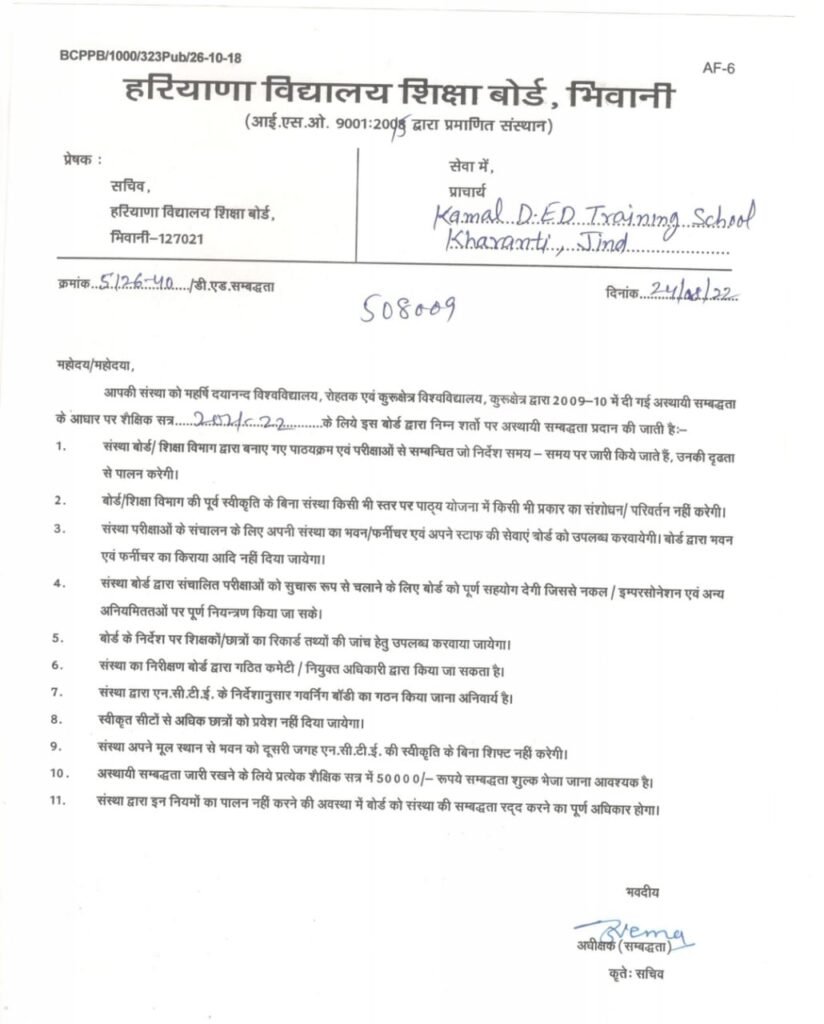 BCPPB/1000/323Pub/26-10-18
AF-6
हरियाणा विद्यालय शिक्षा बोर्ड, भिवानी
(आई.एस.ओ. 9001:2015 द्वारा प्रमाणित संस्थान)
प्रेषक :
सचिव,
हरियाणा विद्यालय शिक्षा बोर्ड,
भिवानी–127021
सेवा में,
प्राचार्य
Kamal D.ED Training School
Kharanti, Jind
क्रमांक..5126-40..../डी.एड.सम्बद्धता
दिनांक...24/08/22
508009
महोदय/महोदया,
आपकी संस्था को महर्षि दयानन्द विश्वविद्यालय, रोहतक एवं कुरूक्षेत्र विश्वविद्यालय, कुरूक्षेत्र द्वारा 2009–10 में दी गई अस्थायी सम्बद्धता
के आधार पर शैक्षिक सत्र....2021-22....के लिये इस बोर्ड द्वारा निम्न शर्तो पर अस्थायी सम्बद्धता प्रदान की जाती हैः–
1. संस्था बोर्ड/ शिक्षा विभाग द्वारा बनाए गए पाठयक्रम एवं परीक्षाओं से सम्बन्धित जो निर्देश समय – समय पर जारी किये जाते हैं, उनकी दृढता
से पालन करेगी।
2. बोर्ड/शिक्षा विभाग की पूर्व स्वीकृति के बिना संस्था किसी भी स्तर पर पाठ्य योजना में किसी भी प्रकार का संशोधन/ परिवर्तन नहीं करेगी।
3. संस्था परीक्षाओं के संचालन के लिए अपनी संस्था का भवन/फर्नीचर एवं अपने स्टाफ की सेवाएं बोर्ड को उपलब्ध करवायेगी। बोर्ड द्वारा भवन
एवं फर्नीचर का किराया आदि नहीं दिया जायेगा।
4. संस्था बोर्ड द्वारा संचालित परीक्षाओं को सुचारू रूप से चलाने के लिए बोर्ड को पूर्ण सहयोग देगी जिससे नकल / इम्परसोनेशन एवं अन्य
अनियमितताओं पर पूर्ण नियन्त्रण किया जा सके।
5. बोर्ड के निर्देश पर शिक्षकों/छात्रों का रिकार्ड तथ्यों की जांच हेतु उपलब्ध करवाया जायेगा।
6. संस्था का निरीक्षण बोर्ड द्वारा गठित कमेटी / नियुक्त अधिकारी द्वारा किया जा सकता है।
7. संस्था द्वारा एन.सी.टी.ई. के निर्देशानुसार गवर्निग बॉडी का गठन किया जाना अनिवार्य है।
8. स्वीकृत सीटों से अधिक छात्रों को प्रवेश नहीं दिया जायेगा।
9. संस्था अपने मूल स्थान से भवन को दूसरी जगह एन.सी.टी.ई. की स्वीकृति के बिना शिफ्ट नहीं करेगी।
10. अस्थायी सम्बद्धता जारी रखने के लिये प्रत्येक शैक्षिक सत्र में 50000/– रूपये सम्बद्धता शुल्क भेजा जाना आवश्यक है।
11. संस्था द्वारा इन नियमों का पालन नहीं करने की अवस्था में बोर्ड को संस्था की सम्बद्धता रद्द करने का पूर्ण अधिकार होगा।
भवदीय
अधीक्षक (सम्बद्धता)
कृतेः सचिव